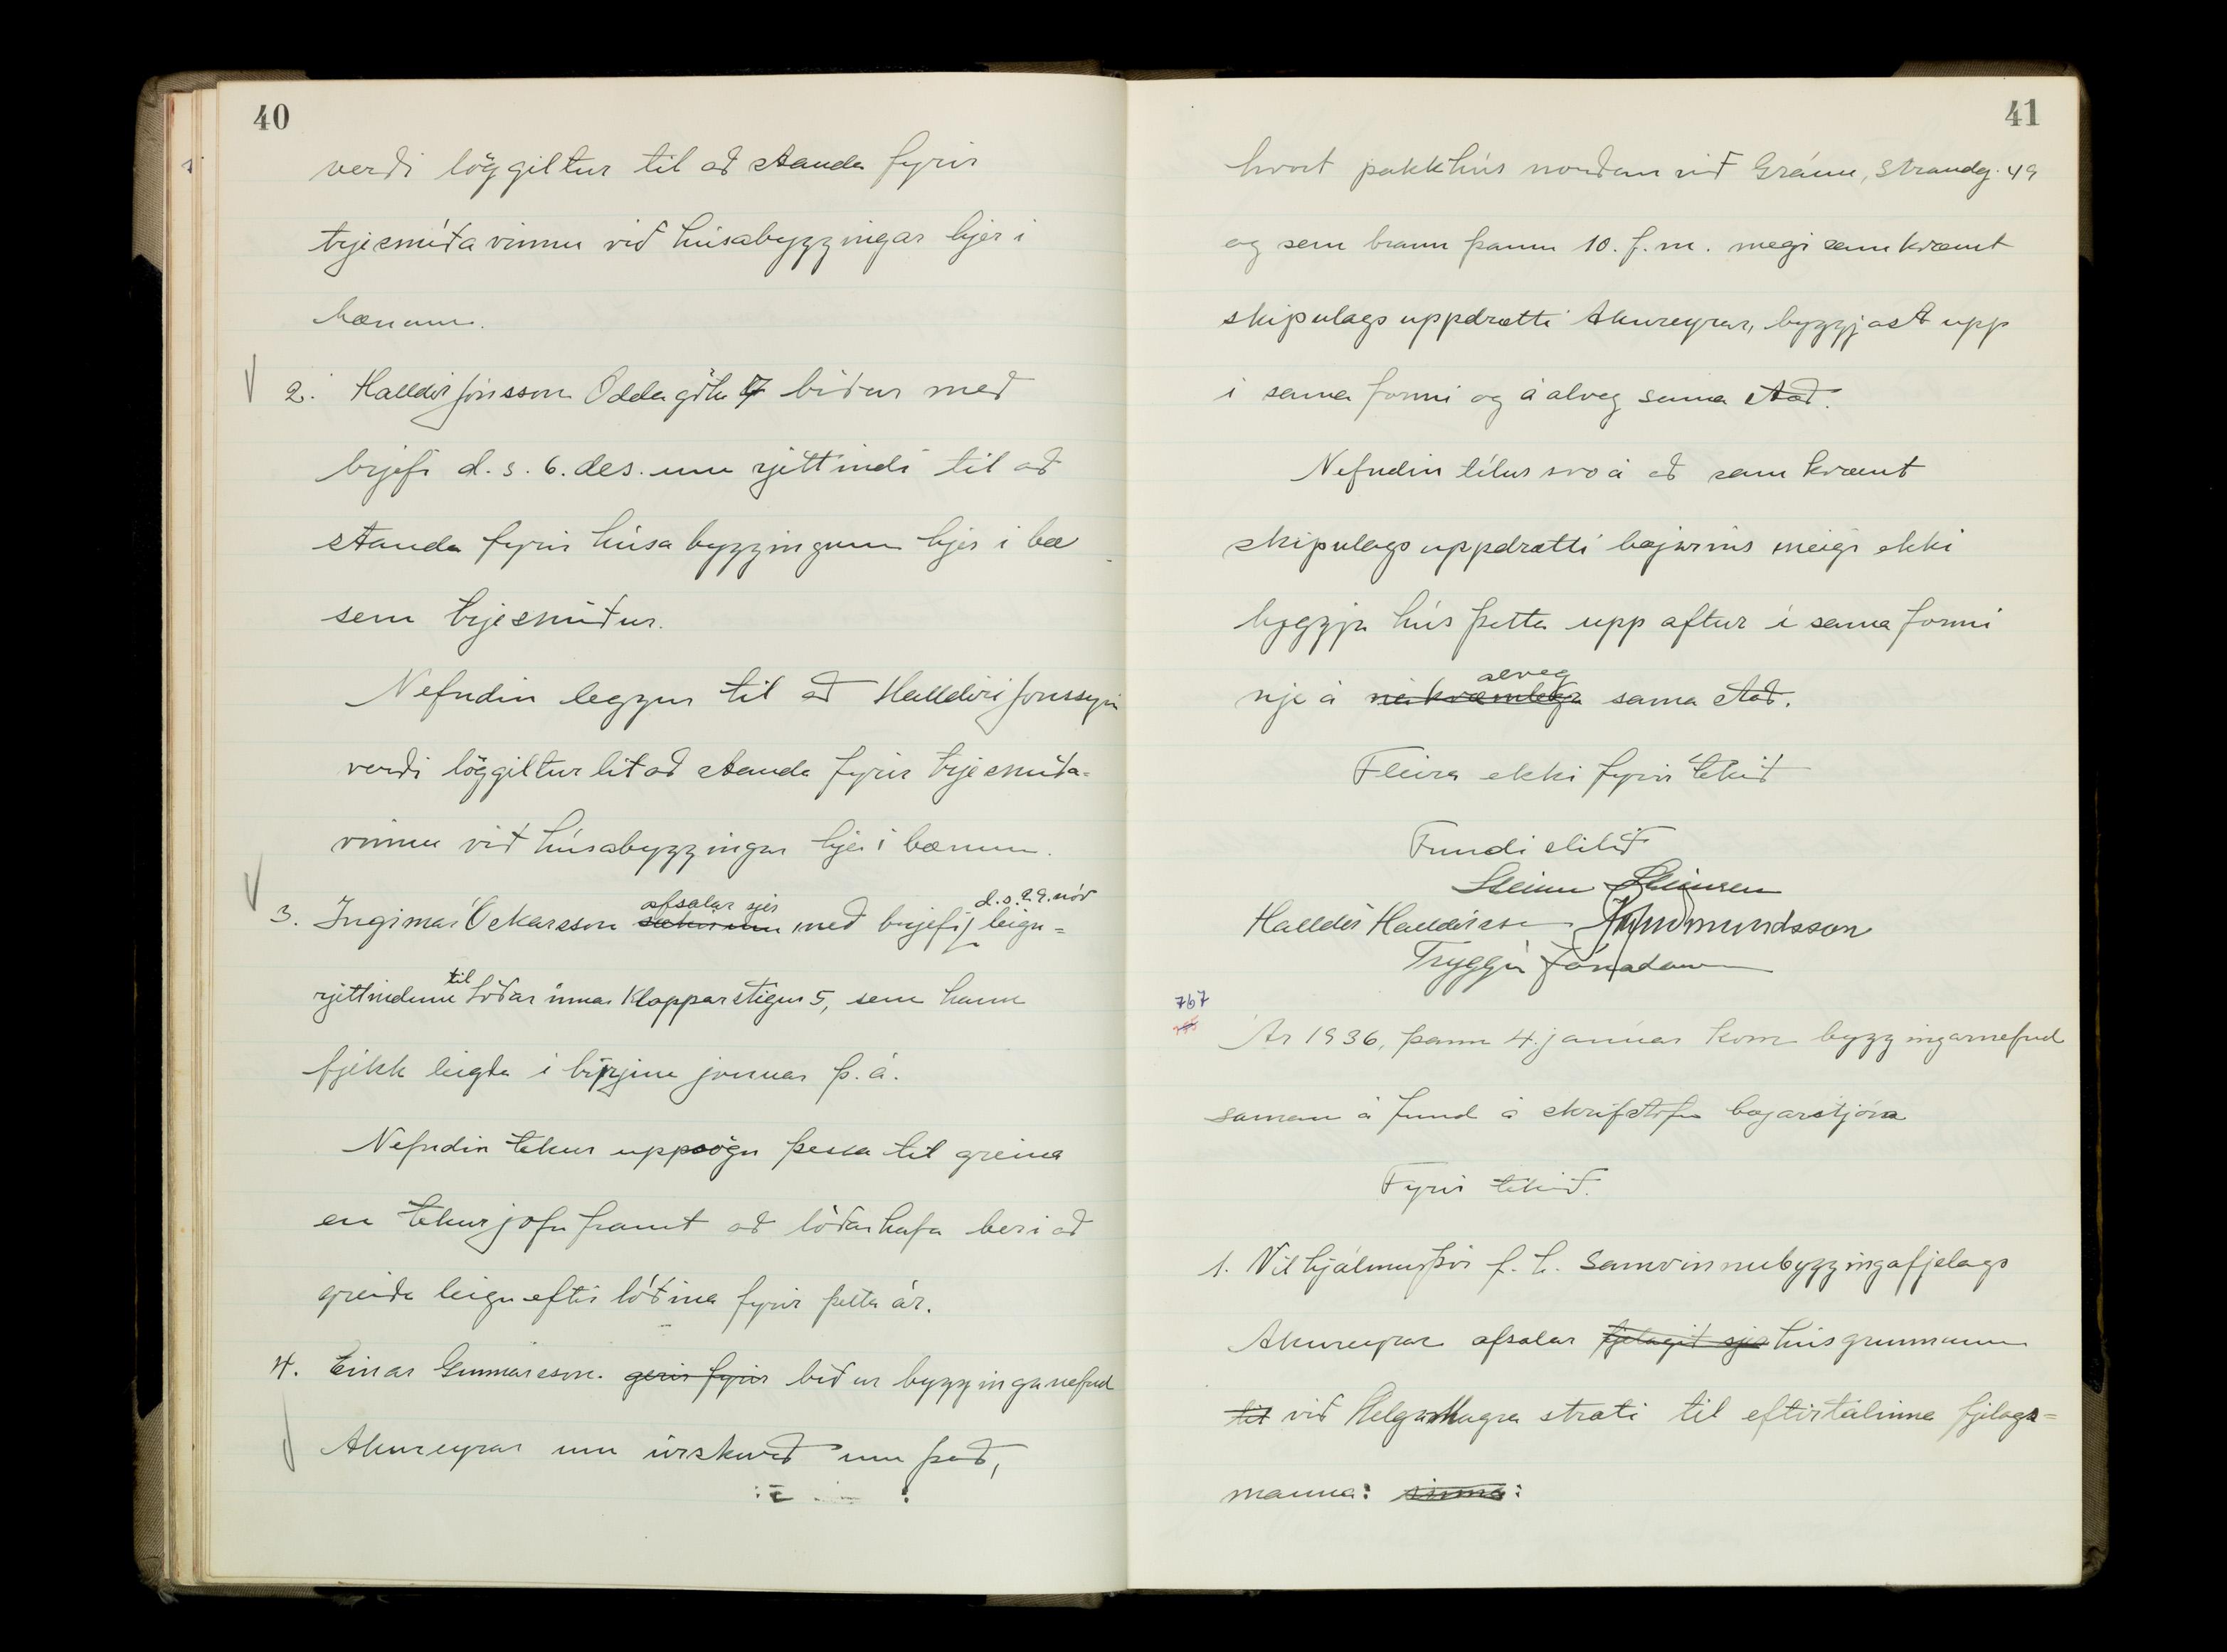 40
verði löggiltur til að standa fyrir
trjesmíðavinnu við húsabyggingar hjer í
bænum.
2. Halldór Jónsson Oddagötu 7 biður með
brjefi d.s. 6. des. um rjettindi til að
standa fyrir húsabyggingum hjer í bæ
sem trjesmiður.
Nefndin leggur til að Halldóri Jónssyni
verði löggiltur til að standa fyrir trjesmíða-
vinnu við húsabyggingar hjer í bænum.
afsalar sjer d.s. 29. nóv
3. Ingimar Óskarsson sækir um með brjefi, leigu=
rjettindum til lóðarinnar Klapparstígur 5, sem hann
fjekk leigða í byrjun janúar þ.á.
Nefndin tekur uppsögn þessa til greina
en tekur jafnframt að lóðarhafa beri að
greiða leigu eftir lóðina fyrir þetta ár.
4. Einar Gunnarsson. gerir fyrir biður bygginganefnd
Akureyrar um úrskurð um það,
41
hvort pakkhús norðan við Gránu, Strandg. 49
og sem brann þann 10. f.m. megi samkvæmt
skipulagsuppdrætti Akureyrar, byggjast upp
í sama formi og á alveg sama stað.
Nefndin lítur svo á að samkvæmt
skipulagsuppdrætti bæjarins meigi ekki
byggja hús þetta upp aftur í sama formi
alveg
nje á nákvæmlega sama stað.
Fleira ekki fyrir tekið
Fundi slitið
Steinn Steinsen
Halldór Halldórsson Guðmundsson
Tryggvi Jónatansson
767
Ár 1936, þann 4. janúar kom byggingarnefnd
saman á fund á skrifstofu bæjarstjóra
Fyrir tekið.
1. Vilhjálmur Þór f.h. Samvinnubyggingafjelags
Akureyrar afsalar fjelagið sjer húsgrunnum
til við Helga Magra stræti til eftirtalinna fjelags=
manna: sinna: